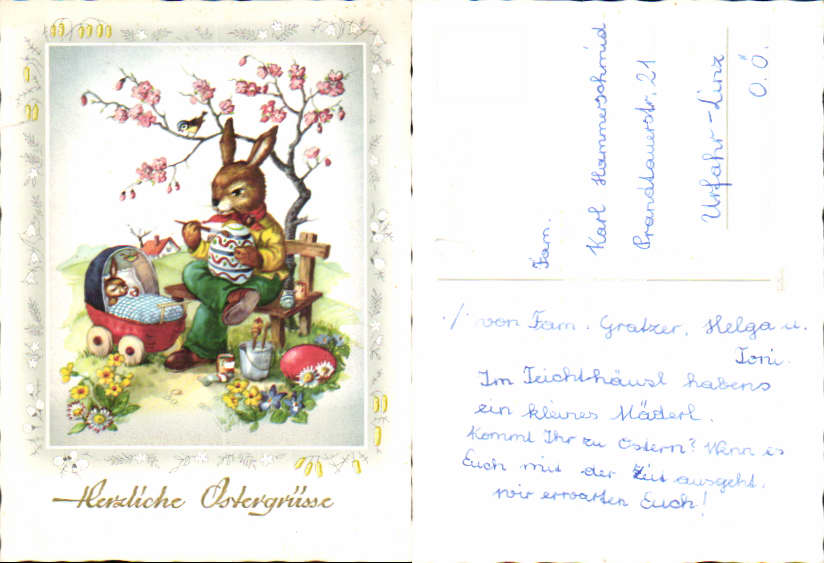 Herzliche Ostergrüsse
Fam.
Karl Hammerschmid
Prandtauerstr. 21
Urfahr-Linz
O.Ö.
./ von Fam. Gratzer, Helga u.
Toni.
Im Teichthäusl habens
ein kleines Mäderl.
Kommt Ihr zu Ostern? Wenn es
Euch mit der Zeit ausgeht.
wir erwarten Euch!